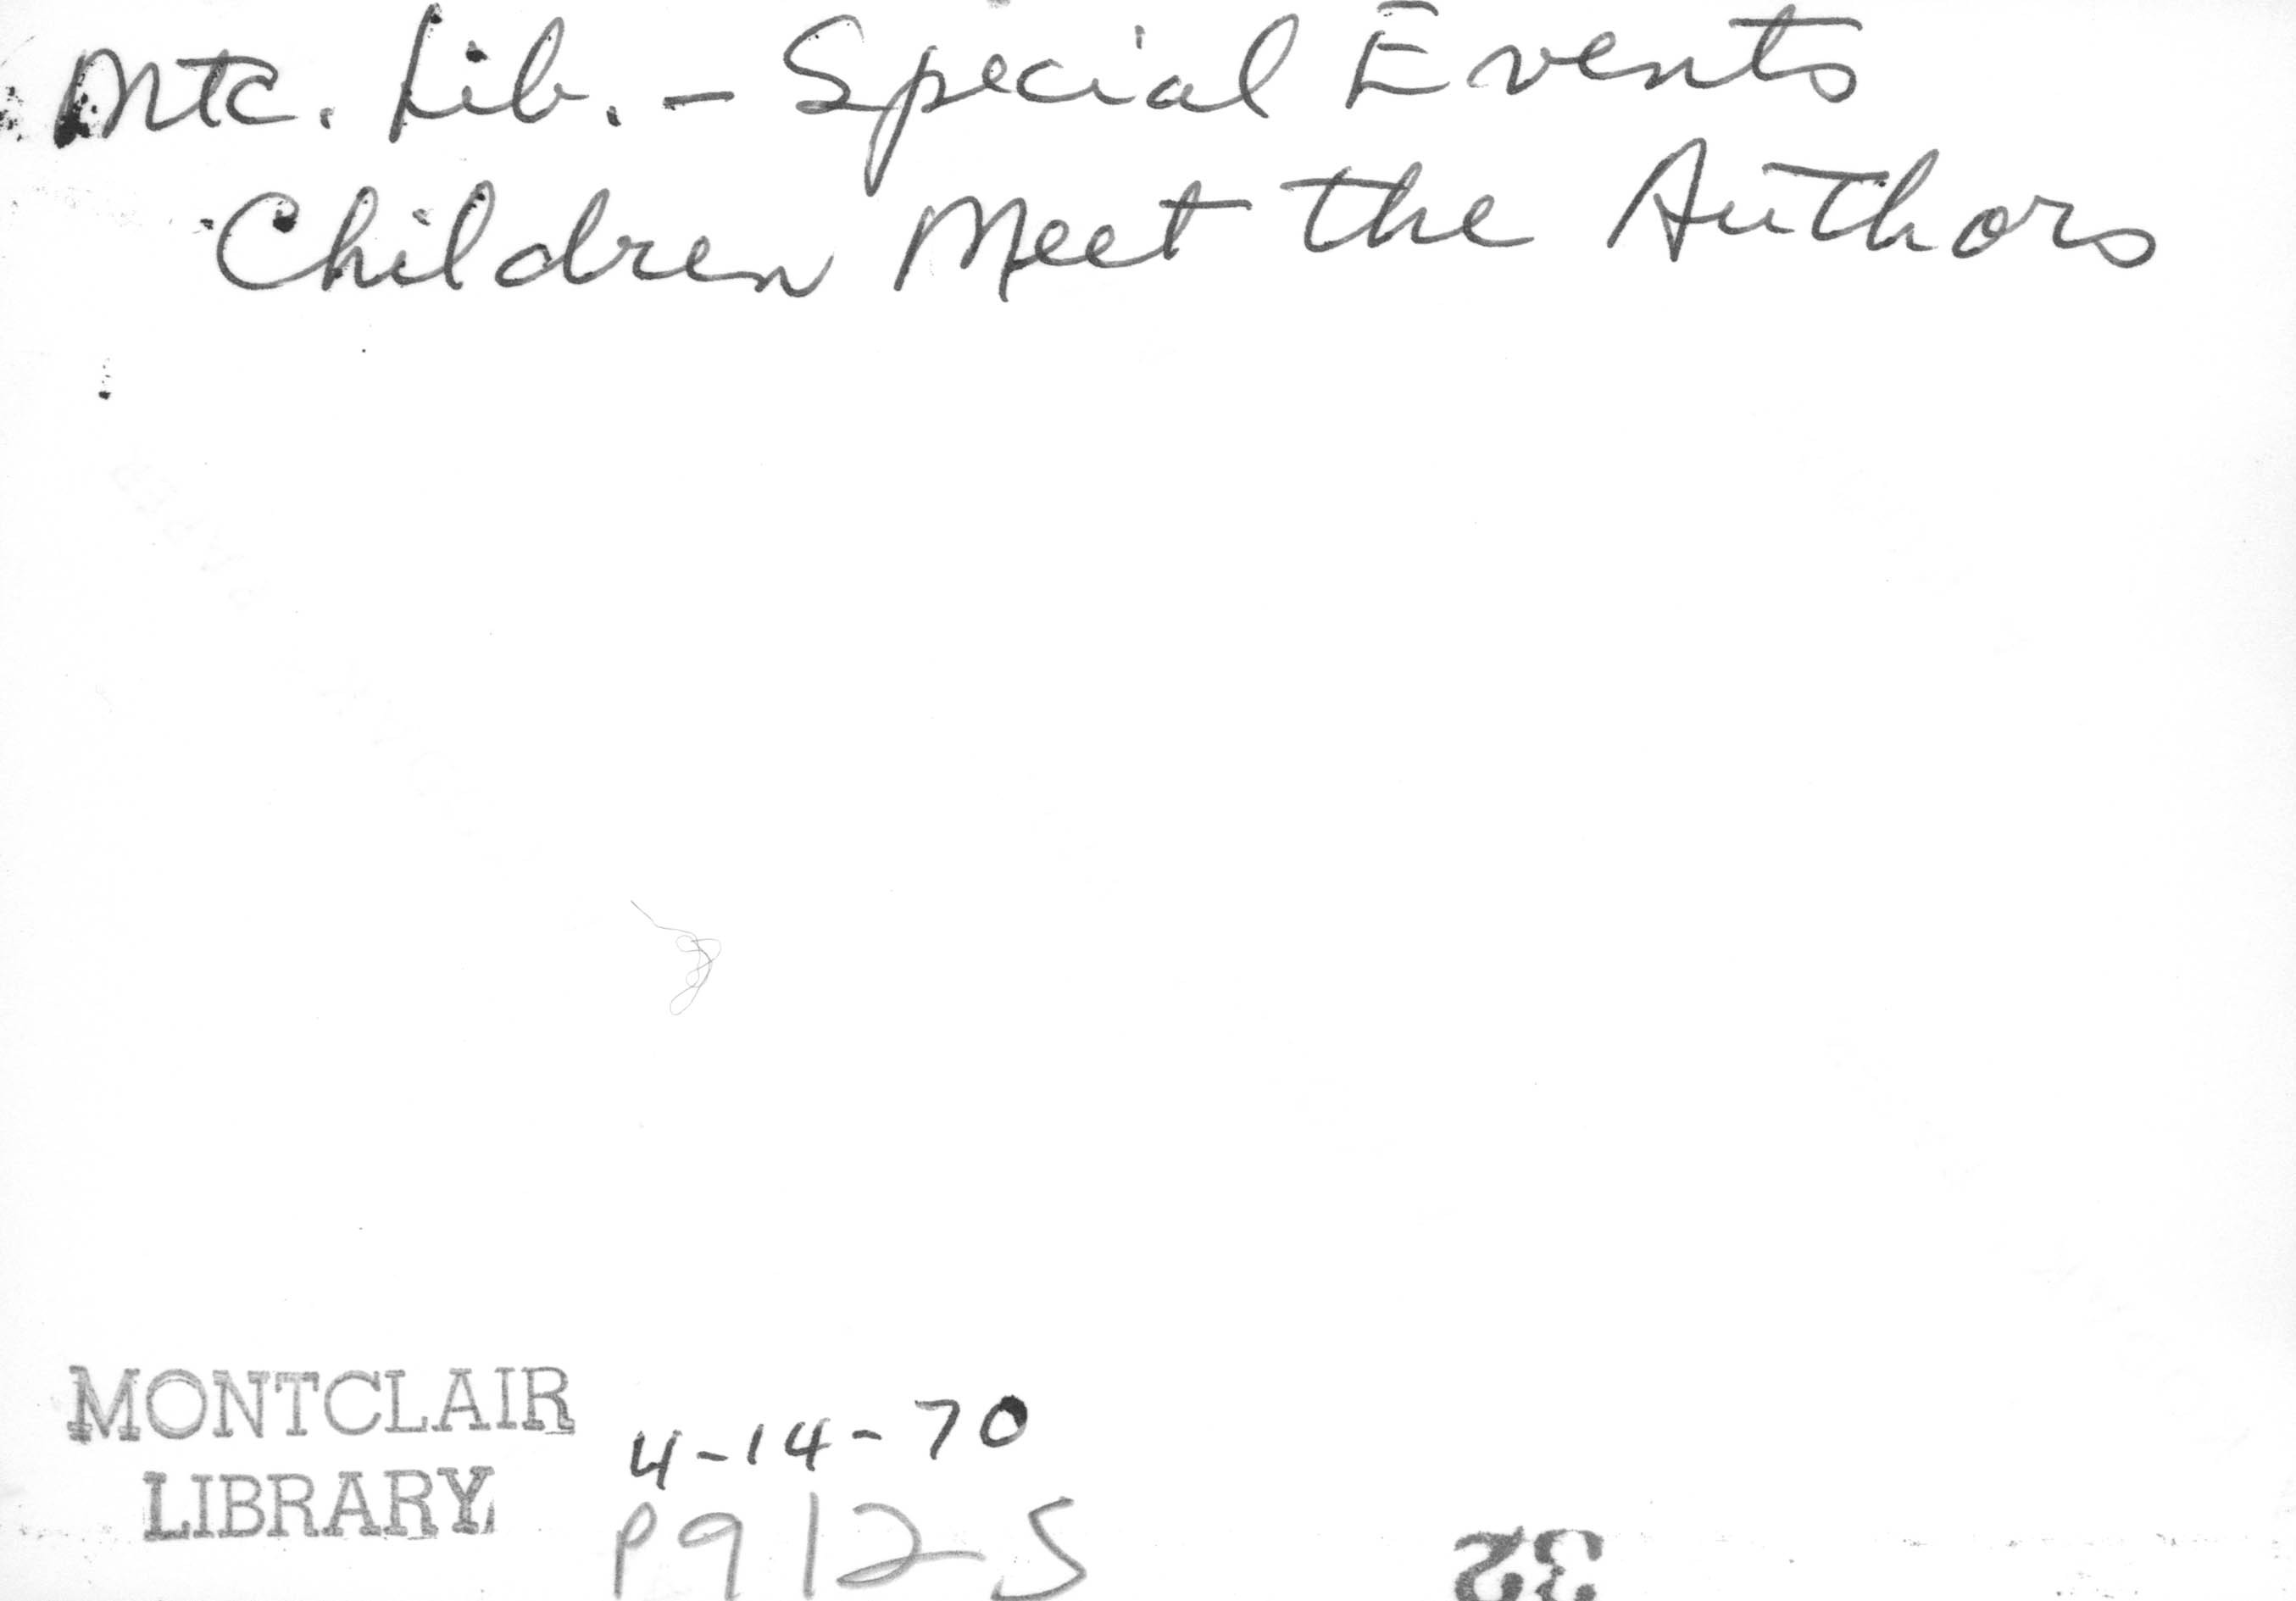 Mtc. Lib. - Special Events
Children Meet the Authors
MONTCLAIR
LIBRARY
4-14-70
P9125
32